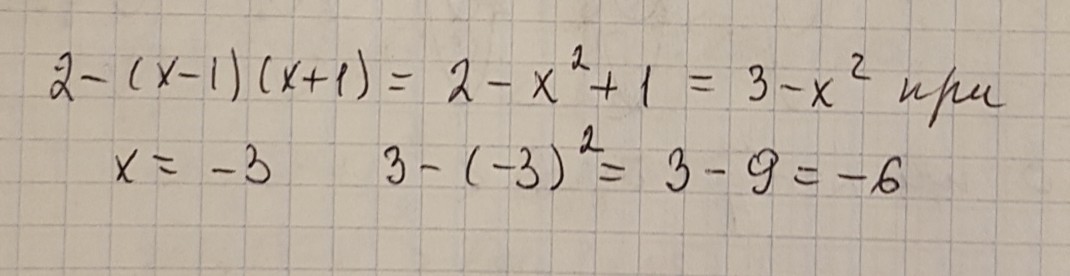 2 - (x-1)(x+1) = 2 - x² + 1 = 3 - x² при
x = -3 3 - (-3)² = 3 - 9 = -6